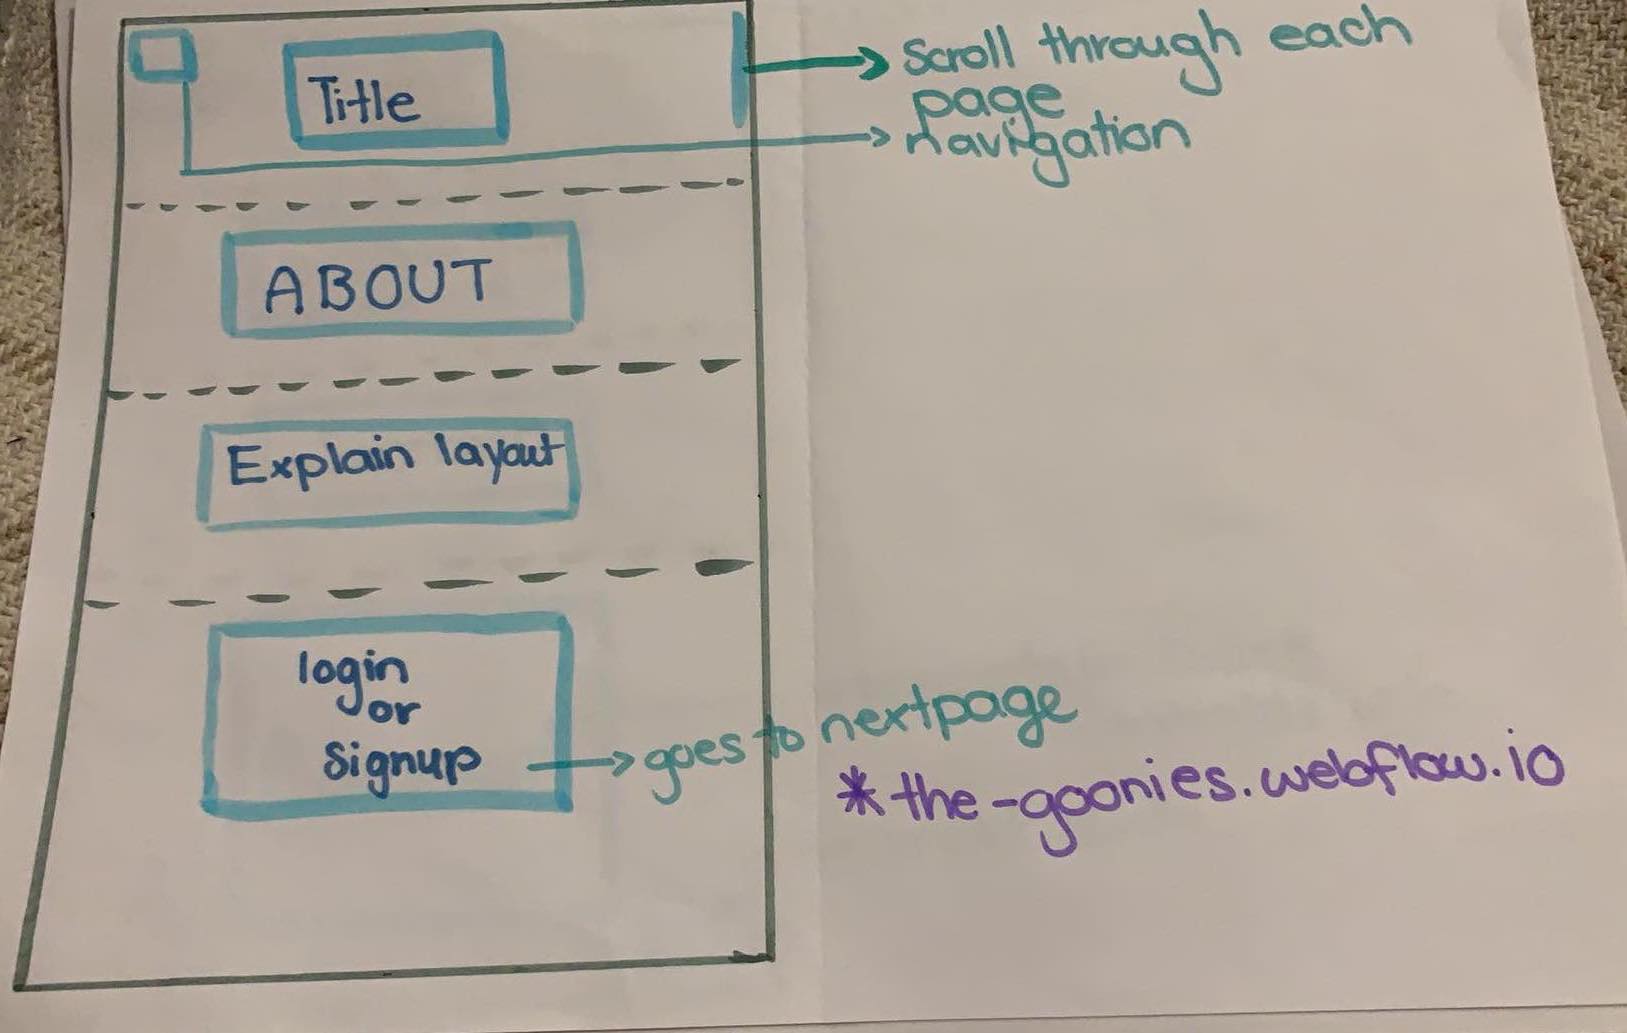 Title
Scroll through each
page
navigation
ABOUT
Explain layout
login
or
signup
goes to nextpage
*the-goonies.webflow.io